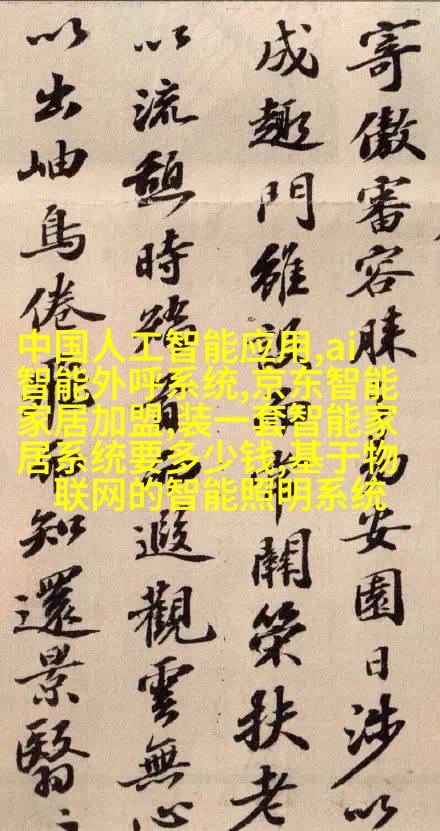 寄傲審容膝易安園日涉以
成趣門雖設常關策扶老
以流憩時矯首遐觀雲無心
以出岫鳥倦飛知還景翳
中国人工智能应用,ai
智能外呼系统,京东智能
家居加盟,装一套智能家
居系统要多少钱,基于物
联网的智能照明系统